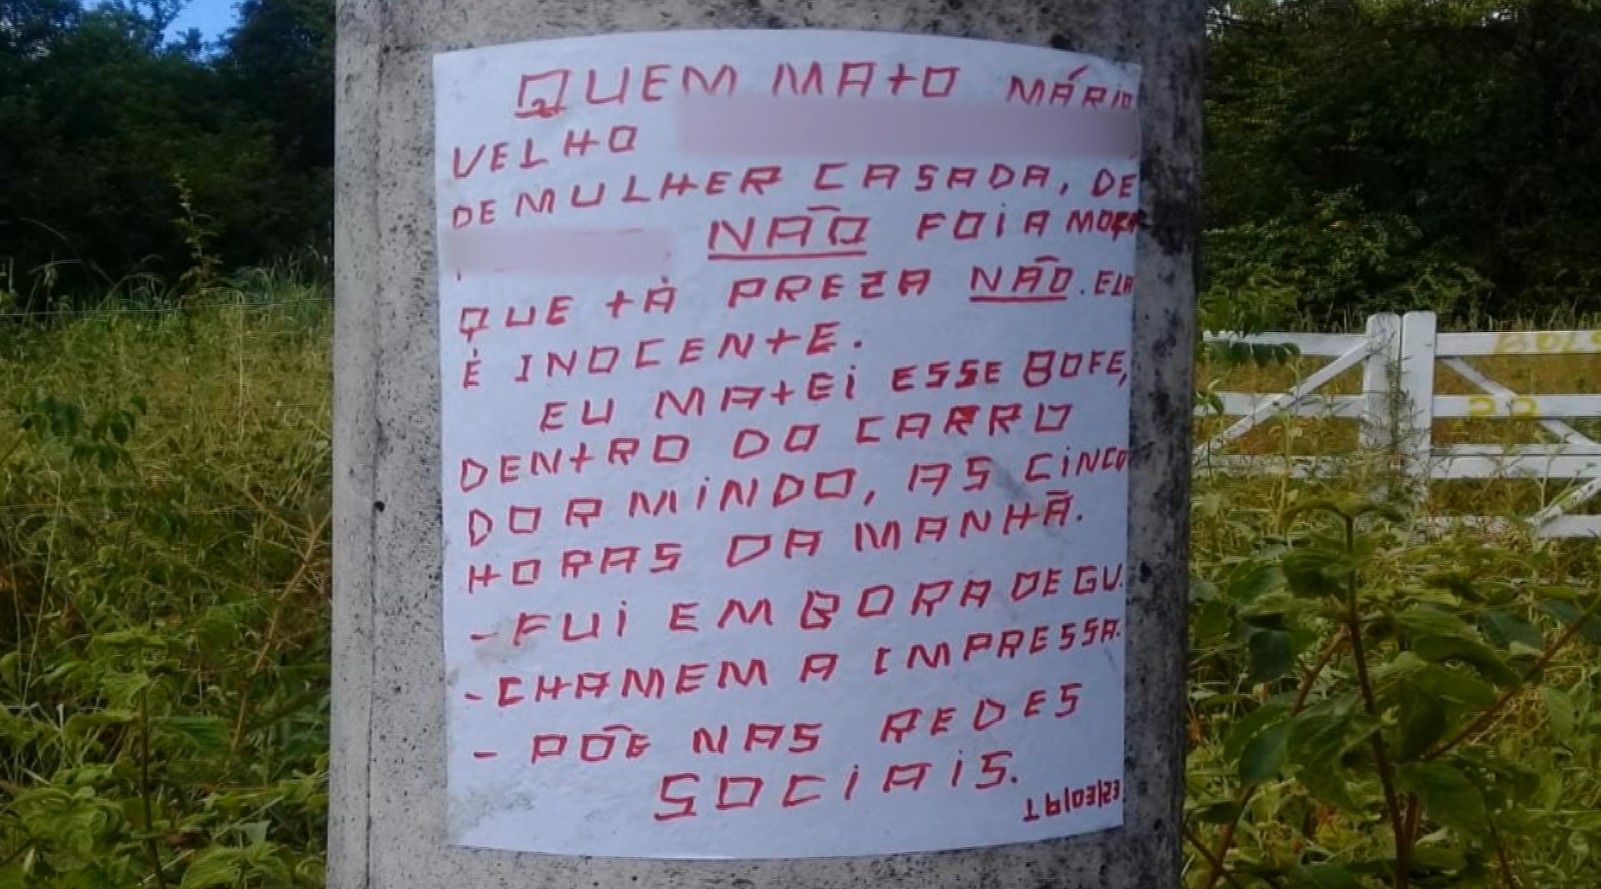 QUEM MATO MÁRIO
VELHO
DE MULHER CASADA, DE
NÃO FOI A MORA
QUE TÁ PREZA NÃO. ELA
É INOCENTE.
EU MATEI ESSE BOFE,
DENTRO DO CARRO
DORMINDO, AS CINCO
HORAS DA MANHÃ.
- FUI EMBORA DE GU.
- CHAMEM A IMPRESSA.
- PÕE NAS REDES
SOCIAIS.